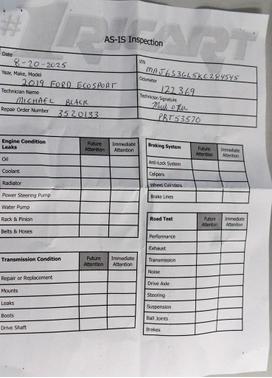 AS-IS Inspection
Date
8-20-2025
VIN
Year, Make, Model
2019 FORD ECOSPORT
Odometer
122,369
Technician Name
MICHAEL BLACK
Technician Signature
Repair Order Number 3520133
PRT53570
Engine Condition Future Attention Immediate Attention
Leaks
Oil
Coolant
Radiator
Power Steering Pump
Water Pump
Rack & Pinion
Belts & Hoses
Braking System Future Attention Immediate Attention
Anti-Lock System
Calipers
Wheel Cylinders
Brake Lines
Road Test Future Attention Immediate Attention
Performance
Exhaust
Transmission
Noise
Drive Axle
Steering
Suspension
Ball Joints
Brakes
Transmission Condition Future Attention Immediate Attention
Repair or Replacement
Mounts
Leaks
Boots
Drive Shaft